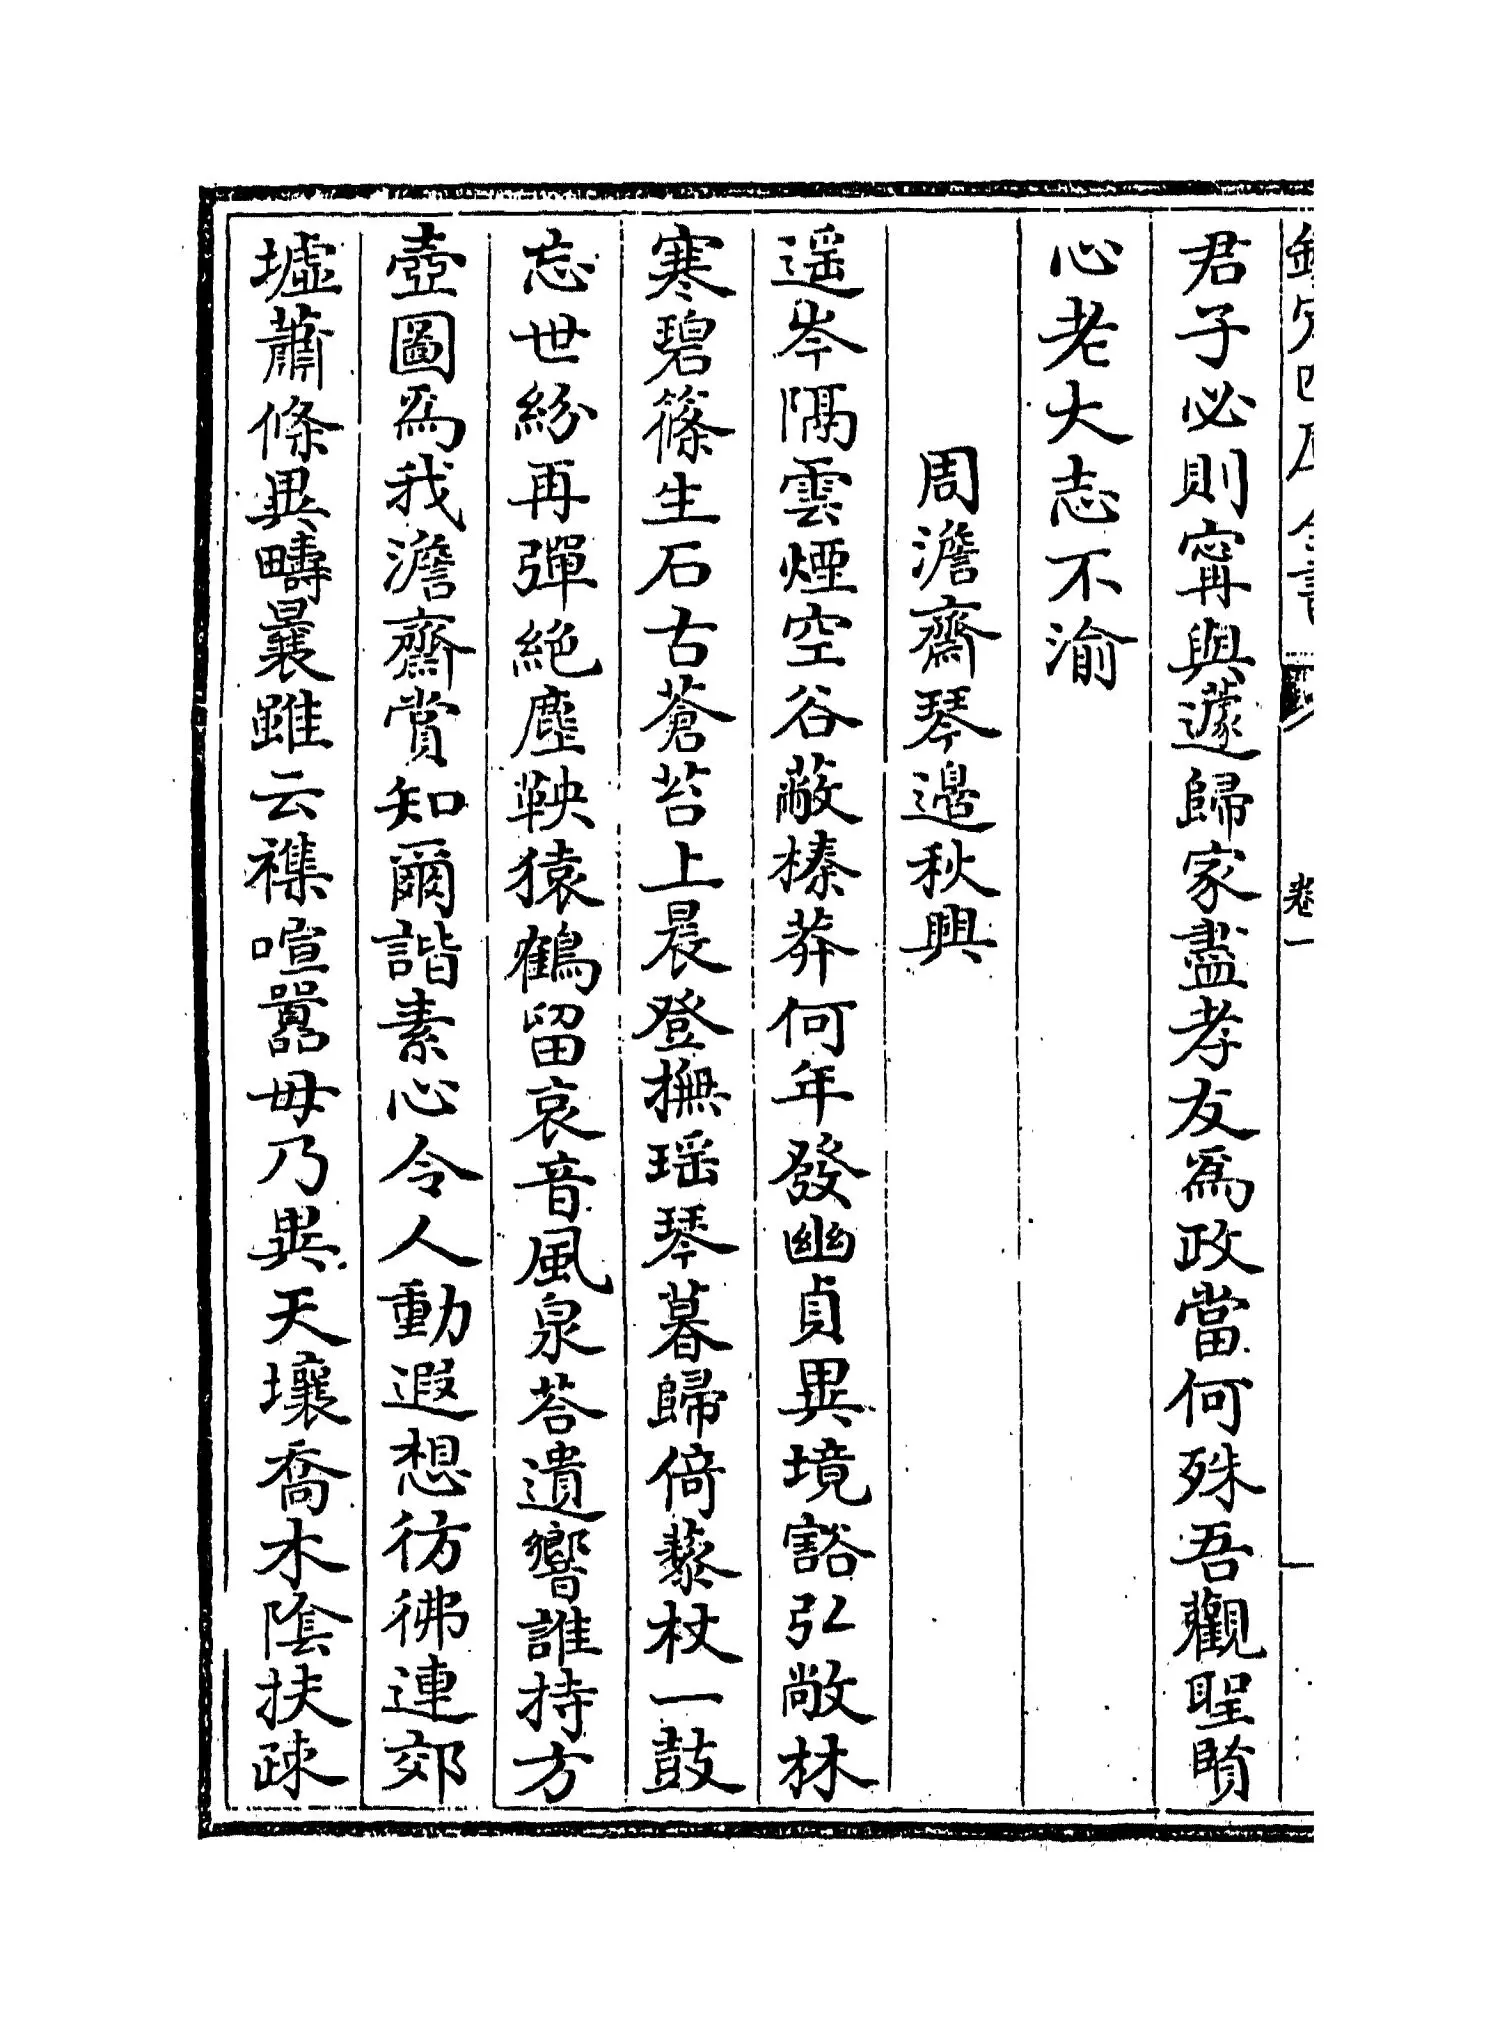 欽定四庫全書
卷一
君子必則寗與蘧歸家盡孝友爲政當何殊吾觀聖賢
心老大志不渝
周澹齋琴邊秋興
遥岑隔雲煙空谷蔽榛莽何年發幽貞異境豁弘敞林
寒碧篠生石古蒼苔上晨登撫瑶琴暮歸倚藜杖一鼓
忘世紛再彈絶塵鞅猿鶴留哀音風泉荅遺響誰持方
壺圖爲我澹齋賞知爾諧素心令人動遐想彷彿連郊
墟蕭條異疇曩雖云襍喧囂毋乃異天壤喬木陰扶疎